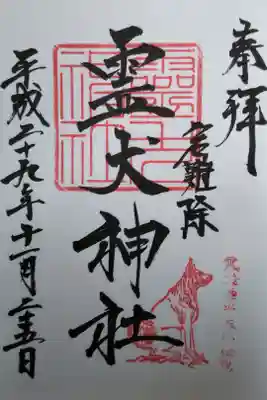 奉拝
厄難除
霊犬神社
平成二十九年十一月二十五日